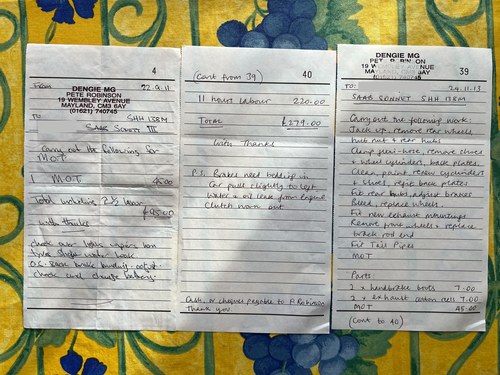 4
DENGIE MG
PETE ROBINSON
19 WEMBLEY AVENUE
MAYLAND, CM3 6AY
(01621) 740745
From 22.9.11
TO SHH 138M
SAAB SONETT III
Carry out the following for
MOT
1 MOT 45.00
Total including 2½ hours
£95.00
with thanks
check over lights wipers horn
O.S. rear brake binding - adjust
check and charge battery
(Cont from 39) 40
11 hours labour 220.00
TOTAL £279.00
With Thanks
P.S. Brakes need bedding in
Car pull slightly to left
Water & oil leak from engine
Clutch worn out
Cash, or cheques payable to P. Robinson
Thank you.
DENGIE MG 39
PETE ROBINSON
19 WEMBLEY AVENUE
MAYLAND, CM3 6AY
(01621) 740745
TO: 24.11.13
SAAB SONNET SHH 138M
Carry out the following work:
Jack up, remove rear wheels
hub nut & rear hubs
Clamp flexi-hose, remove shoes
+ wheel cylinders, back plates.
Clean, paint, renew cylinders
+ shoes, refit back plates
Fit rear hubs, adjust brakes
Bleed, replace wheels.
Fit new exhaust mountings
Remove front wheels & replace
track rod end
Fit Tail Pipe
MOT
Parts:
2 x handbrake boots 7.00
2 x exhaust cotton reels 7.00
MOT 45.00
(Cont to 40)